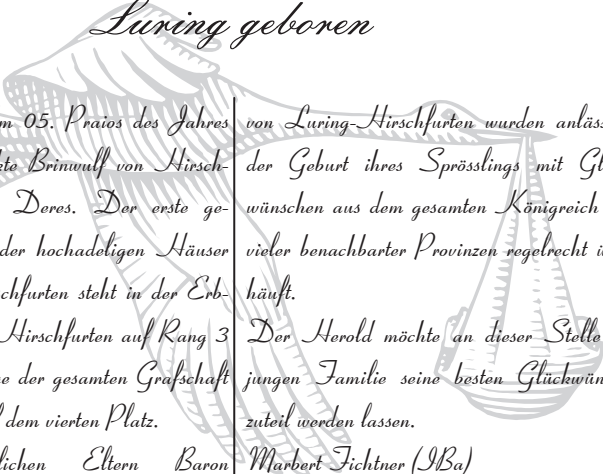 Luring geboren
m 05. Praios des Jahres
kte Brinwulf von Hirsch-
Deres. Der erste ge-
der hochadeligen Häuser
chfurten steht in der Erb-
Hirschfurten auf Rang 3
ne der gesamten Grafschaft
dem vierten Platz.
lichen Eltern Baron
von Luring-Hirschfurten wurden anläss
der Geburt ihres Sprösslings mit Gl
wünschen aus dem gesamten Königreich
vieler benachbarter Provinzen regelrecht ü
häuft.
Der Herold möchte an dieser Stelle
jungen Familie seine besten Glückwün
zuteil werden lassen.
Marbert Fichtner (IBa)